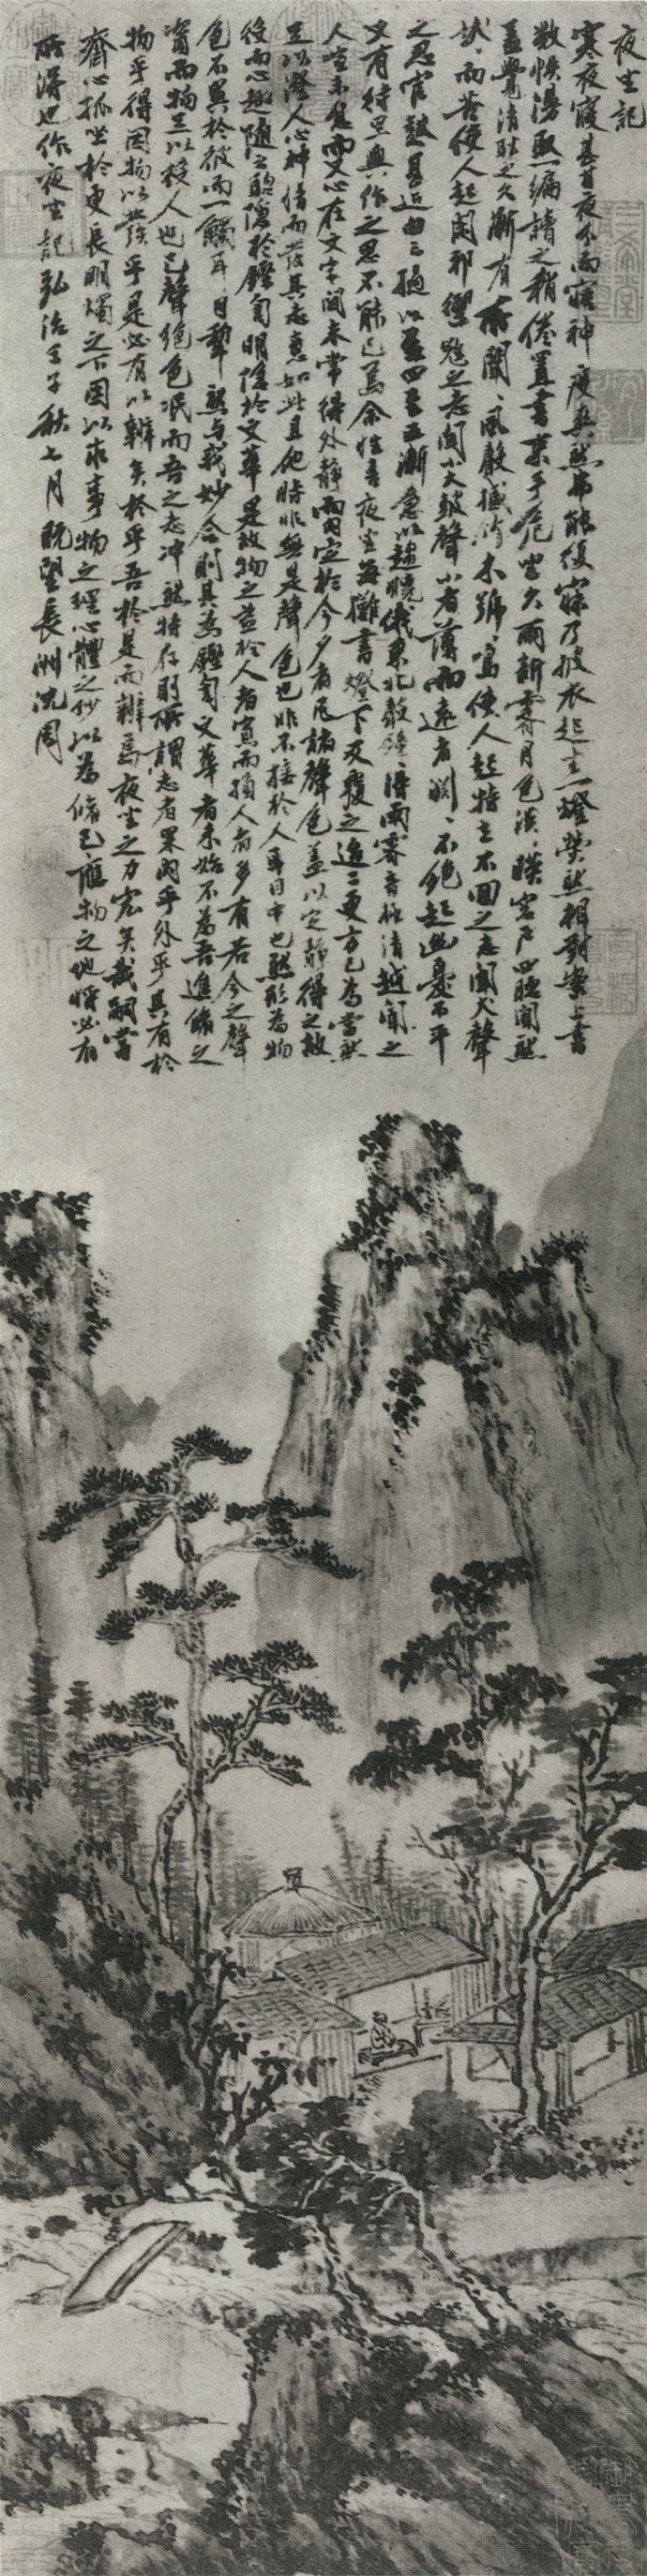 夜坐記
寒夜寢甚甘夜分而寤神度爽然弗能復寐乃披衣起坐一燈熒然相對案上書
數帙漫取一編讀之稍倦置書束手危坐久雨新霽月色淡〻映窗戶四聽闃然
蓋覺清耿之久漸有所聞〻風聲撼竹木號〻鳴使人起特立不回之志聞犬聲
狀〻而苦使人起閑邪禦寇之志聞小大鼓聲小者薄而遠者淵〻不絕起幽憂不平
之思官鼓甚近由三撾以至四至五漸急以趨曉俄東北聲鐘〻得雨霽音極清越聞之
又有待旦興作之思不能已焉余性喜夜坐每攤書燈下反覆之迨二更方已為當然
人喧未息而又心在文字間未常得外靜而內定於今夕者凡諸聲色蓋以定靜得之故
足以澄人心神情而發其志意如此且他時非無是聲色也非不接於人耳目中也然形為物
役而心趣隨之聰隱於鏗訇明隱於文華是故物之益於人者寡而損人者多有若今之聲
色不異於彼而一觸耳目犁然與我妙合則其為鏗訇文華者未始不為吾進脩之
資而物足以役人也已聲絕色泯而吾之志冲然特存則所謂志者果內乎外乎其有於
物乎得因物以發乎是必有以辨矣於乎吾於是而辨焉夜坐之力宏矣哉嗣當
齋心孤坐於更長明燭之下因以求事物之理心體之妙以為脩己應物之地將必有
所得也作夜坐記弘治壬子秋七月既望長洲沈周